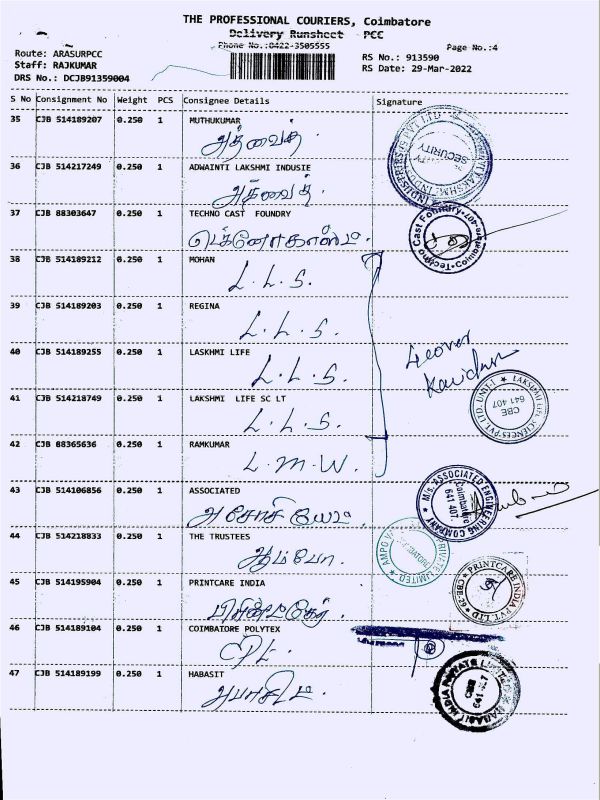 THE PROFESSIONAL COURIERS, Coimbatore
Delivery Runsheet - PCC
Phone No.:0422-3505555
Page No.:4
Route: ARASURPCC
RS No.: 913590
Staff: RAJKUMAR
RS Date: 29-Mar-2022
DRS No.: DCJB91359004
S No Consignment No Weight PCS Consignee Details Signature
35 CJB 514189207 0.250 1 MUTHUKUMAR
அத்வைத்
36 CJB 514217249 0.250 1 ADWAINTI LAKSHMI INDUSIE
அத்வைத்
SECURITY
37 CJB 88303647 0.250 1 TECHNO CAST FOUNDRY
டெக்னோகாஸ்ட்
Cast Foundry
Coimbatore
38 CJB 514189212 0.250 1 MOHAN
L. L. S.
39 CJB 514189203 0.250 1 REGINA
L. L. S.
40 CJB 514189255 0.250 1 LASKHMI LIFE
L. L. S.
41 CJB 514218749 0.250 1 LAKSHMI LIFE SC LT
L. L. S.
LAKSHMI LIFE SCIENCES PVT. LTD. UNIT-I
CBE
641 407
42 CJB 88365636 0.250 1 RAMKUMAR
L. M. W.
43 CJB 514106856 0.250 1 ASSOCIATED
அசோசியேட்
M/s. ASSOCIATED ENGINEERING COMPANY
Coimbatore
641 407.
44 CJB 514218833 0.250 1 THE TRUSTEES
ஆம்போ
AMPO PRIVATE LIMITED
45 CJB 514195904 0.250 1 PRINTCARE INDIA
பிரிண்ட்கேர்
PRINTCARE INDIA PVT. LTD
CBE-62
46 CJB 514189104 0.250 1 COIMBATORE POLYTEX
CPL
47 CJB 514189199 0.250 1 HABASIT
அபாசிட்
HABASIT INDIA PRIVATE LIMITED
CBE